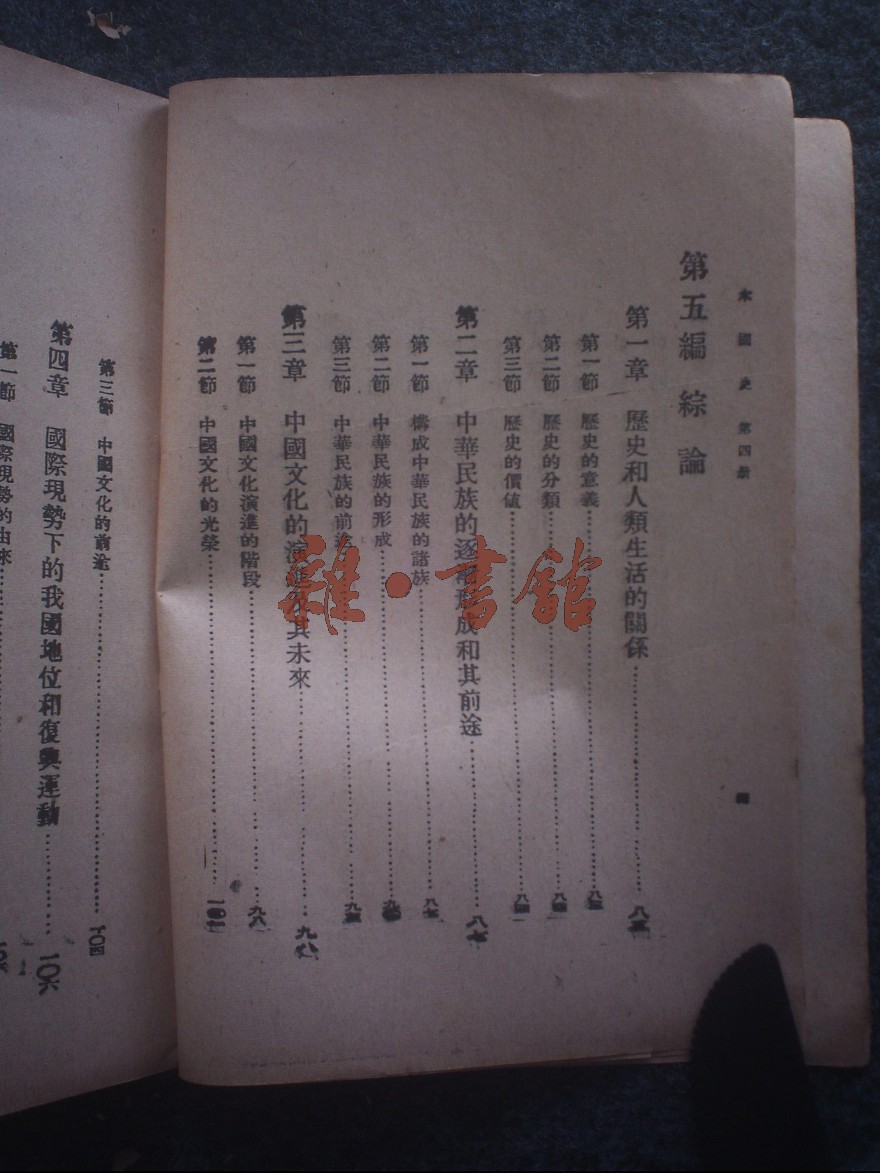 本國史 第四册
第五編 綜論
第一章 歷史和人類生活的關係
第一節 歷史的意義
第二節 歷史的分類
第三節 歷史的價値
第二章 中華民族的逐漸形成和其前途 八七
第一節 構成中華民族的諸族 八七
第二節 中華民族的形成
第三節 中華民族的前途
第三章 中國文化的演進及其未來 九八
第一節 中國文化演進的階段 九八
第二節 中國文化的光榮
第三節 中國文化的前途 一〇四
第四章 國際現勢下的我國地位和復興運動 一〇六
第一節 國際現勢的由來 一〇六
雜·書館